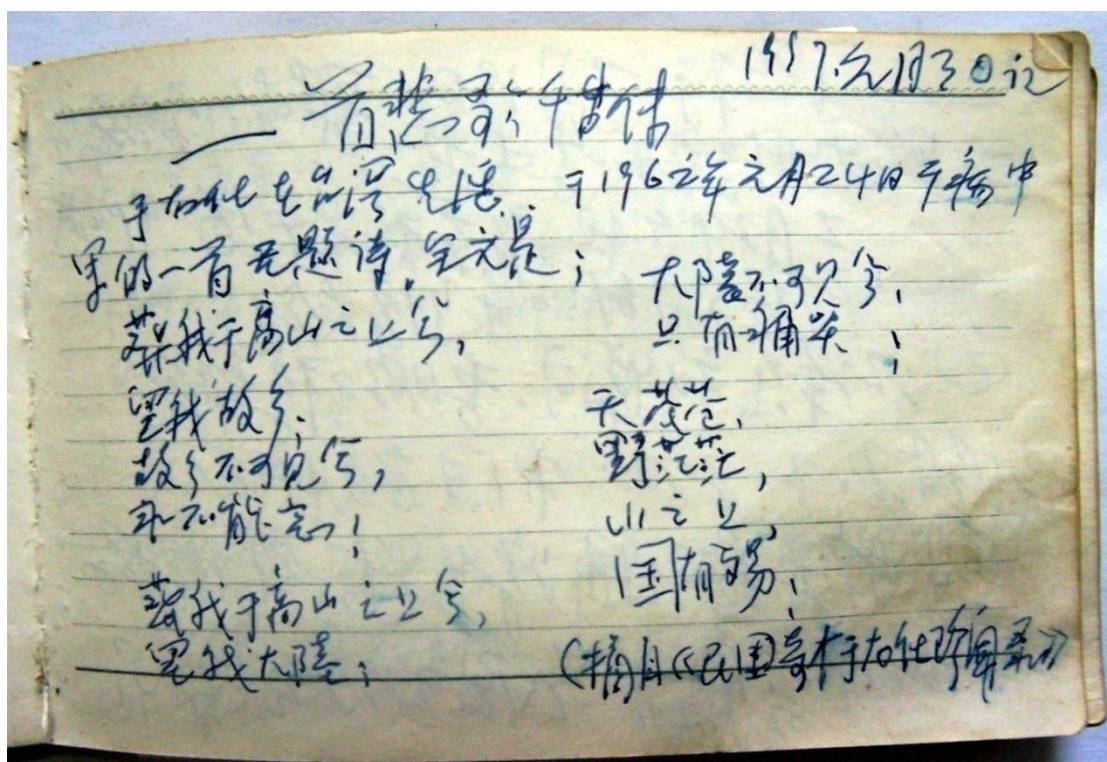 1997.元月30记
一首悲歌
于右任在台湾 于1962年元月24日于病中
写的一首无题诗。全文是:
葬我于高山之上兮,
望我故乡.
故乡不可见兮,
永不能忘!
葬我于高山之上兮,
望我大陆;
大陆不可见兮,
只有痛哭;
天苍苍,
野茫茫,
山之上,
国有殇;
(摘自《民国奇才于右任珍闻录》